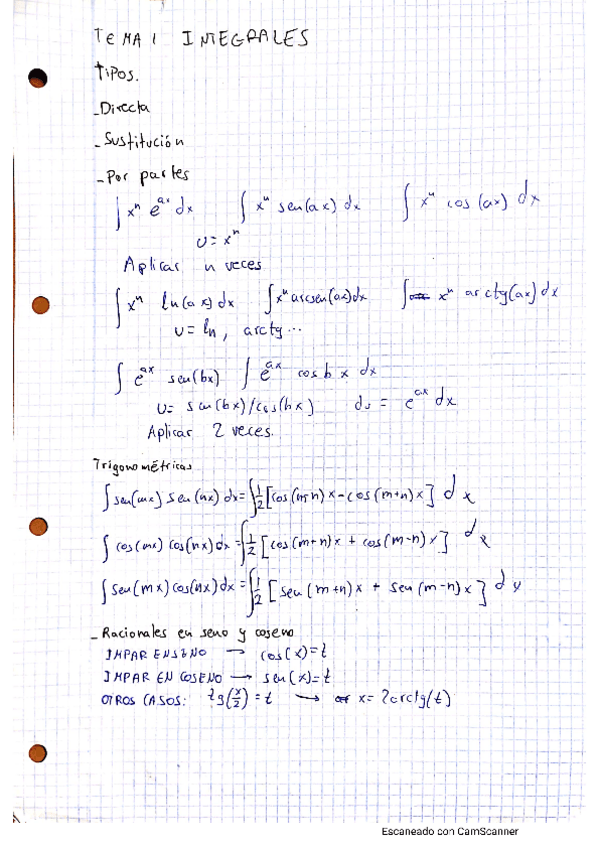 TEMA 1 INTEGRALES
TIPOS.
- Directa
- Sustitución
- Por partes
∫ xⁿ e^(ax) dx ∫ xⁿ sen(ax) dx ∫ xⁿ cos (ax) dx
u = xⁿ
Aplicar n veces
∫ xⁿ ln(ax) dx ∫ xⁿ arcsen(ax) dx ∫ xⁿ arctg(ax) dx
u = ln, arctg ...
∫ e^(ax) sen(bx) ∫ e^(ax) cos b x dx
u = sen(bx)/cos(bx) dv = e^(ax) dx
Aplicar 2 veces.
Trigonométricas
∫ sen(mx) sen(nx) dx = ∫ 1/2 [cos(m-n)x - cos(m+n)x] dx
∫ cos(mx) cos(nx) dx = ∫ 1/2 [cos(m+n)x + cos(m-n)x] dx
∫ sen(mx) cos(nx) dx = ∫ 1/2 [sen(m+n)x + sen(m-n)x] dx
- Racionales en seno y coseno
IMPAR EN SENO → cos(x) = t
IMPAR EN COSENO → sen(x) = t
OTROS CASOS: tg(x/2) = t → x = 2arctg(t)
Escaneado con CamScanner